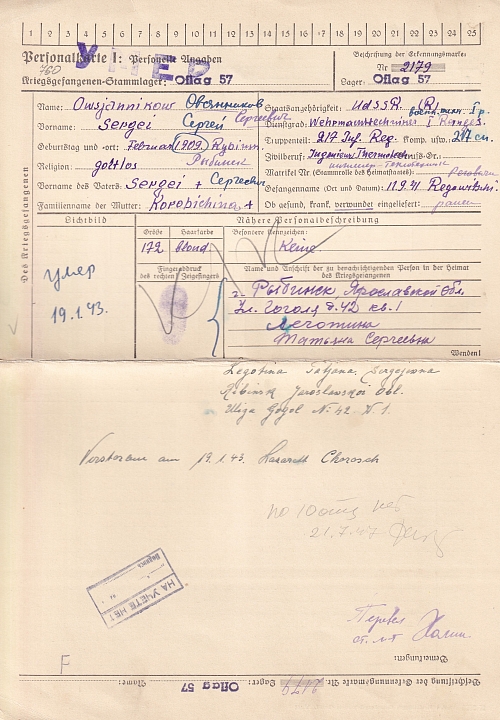 1 2 3 4 5 6 7 8 9 10 11 12 13 14 15 16 17 18 19 20 21 22 23 24 25
Personalkarte I: Personelle Angaben
УМЕР
760
Kriegsgefangenen-Stammlager: Oflag 57
Beschriftung der Erkennungsmarke:
Nr. 2179
Lager: Oflag 57
Des Kriegsgefangenen
Name: Owsjannikow Овсянников
Vorname: Sergei Сергей Сергеевич
Geburtstag und -ort: Februar 1909 Rybinsk
Рыбинск
Religion: gottlos
Vorname des Vaters: Sergei + Сергей
Familienname der Mutter: Koropichina +
Staatsangehörigkeit: UdSSR (R)
Dienstgrad: Wehrmachttechniker I Ranges
Truppenteil: 217 Inf. Reg. Komp. usw.: 217 сп.
Zivilberuf:
Matrikel Nr. (Stammrolle des Heimatstaates):
Gefangennahme (Ort und Datum): 11.9.41
Ob gesund, krank, verwundet eingeliefert: ранен
Lichtbild
умер
19.1.43.
Nähere Personalbeschreibung
Größe Haarfarbe Besondere Kennzeichen:
172 blond Keine
Fingerabdruck
des rechten Zeigefingers
Name und Anschrift der zu benachrichtigenden Person in der Heimat
des Kriegsgefangenen
г. Рыбинск Ярославской Обл.
Ул. Гоголя д. 42 кв. 1
Леготина
Татьяна Сергеевна
Wenden!
Legotina Tatjana Sergejewna
Ribinsk Jaroslawskoi Obl.
Uliza Gogol № 42 W 1.
Verstorben am 19.1.43. Lazarett Chorosch
нет
21.7.47
НА УЧЕТЕ НЕТ
Перевел
ст. л-т
F
Bemerkungen:
Beschriftung der Erkennungsmarke Nr. 2179 Lager: Oflag 57 Name: